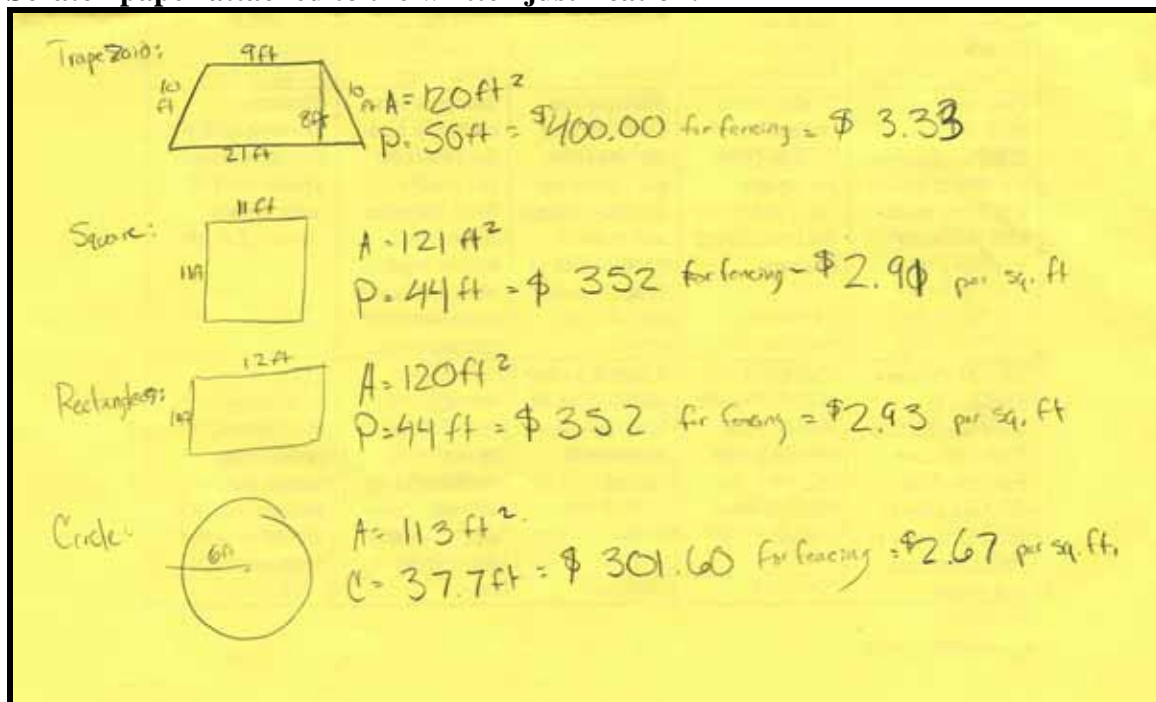 Scratch paper attached to the written justification:
Trapezoid:
9ft
10 ft
10 ft
8ft
21 ft
A = 120 ft²
P. 50ft = $400.00 for fencing = $ 3.33
Square:
11 ft
11ft
A = 121 ft²
P. 44 ft = $ 352 for fencing = $2.91 per sq. ft
Rectangle:
12 ft
10ft
A = 120ft²
P=44 ft = $ 352 for fencing = $2.93 per sq. ft
Circle:
6ft
A = 113 ft².
C = 37.7ft = $ 301.60 for fencing = $2.67 per sq. ft.